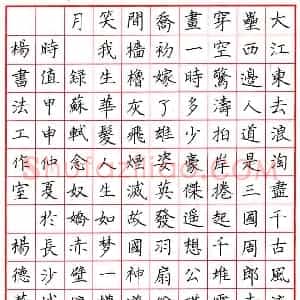 大江東去浪淘盡千古風
壘西邊人道是三國周郎
穿空驚濤拍岸捲起千堆
畫一時多少豪傑遙想公
喬初嫁了雄姿英發羽扇
間檣櫓灰飛煙滅故國神
笑我生華髮人生如夢一
月錄蘇軾念奴嬌赤壁
時值甲申仲夏於長沙
楊書法工作室楊德